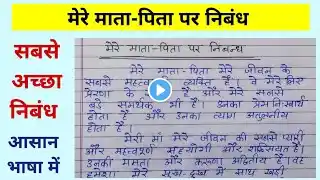 मेरे माता-पिता पर निबंध
सबसे
अच्छा
निबंध
आसान
भाषा में
मेरे माता-पिता पर निबन्ध
मेरे माता-पिता मेरे जीवन के
सबसे महत्वपूर्ण व्यक्ति हैं। वे मेरे लिए
प्रेरणा के हैं और मेरे सबसे
बड़े समर्थक भी हैं। उनका प्रेम निःस्वार्थ
होता है और उनका त्याग अतुलनीय
होता है
मेरी माँ मेरे जीवन की सबसे प्यारी
और महत्वपूर्ण सहयोगी और शख्सियत हैं।
उनकी ममता और करुणा अद्वितीय है। वह
हमेशा मेरे सुख-दुख में साथ खड़ी